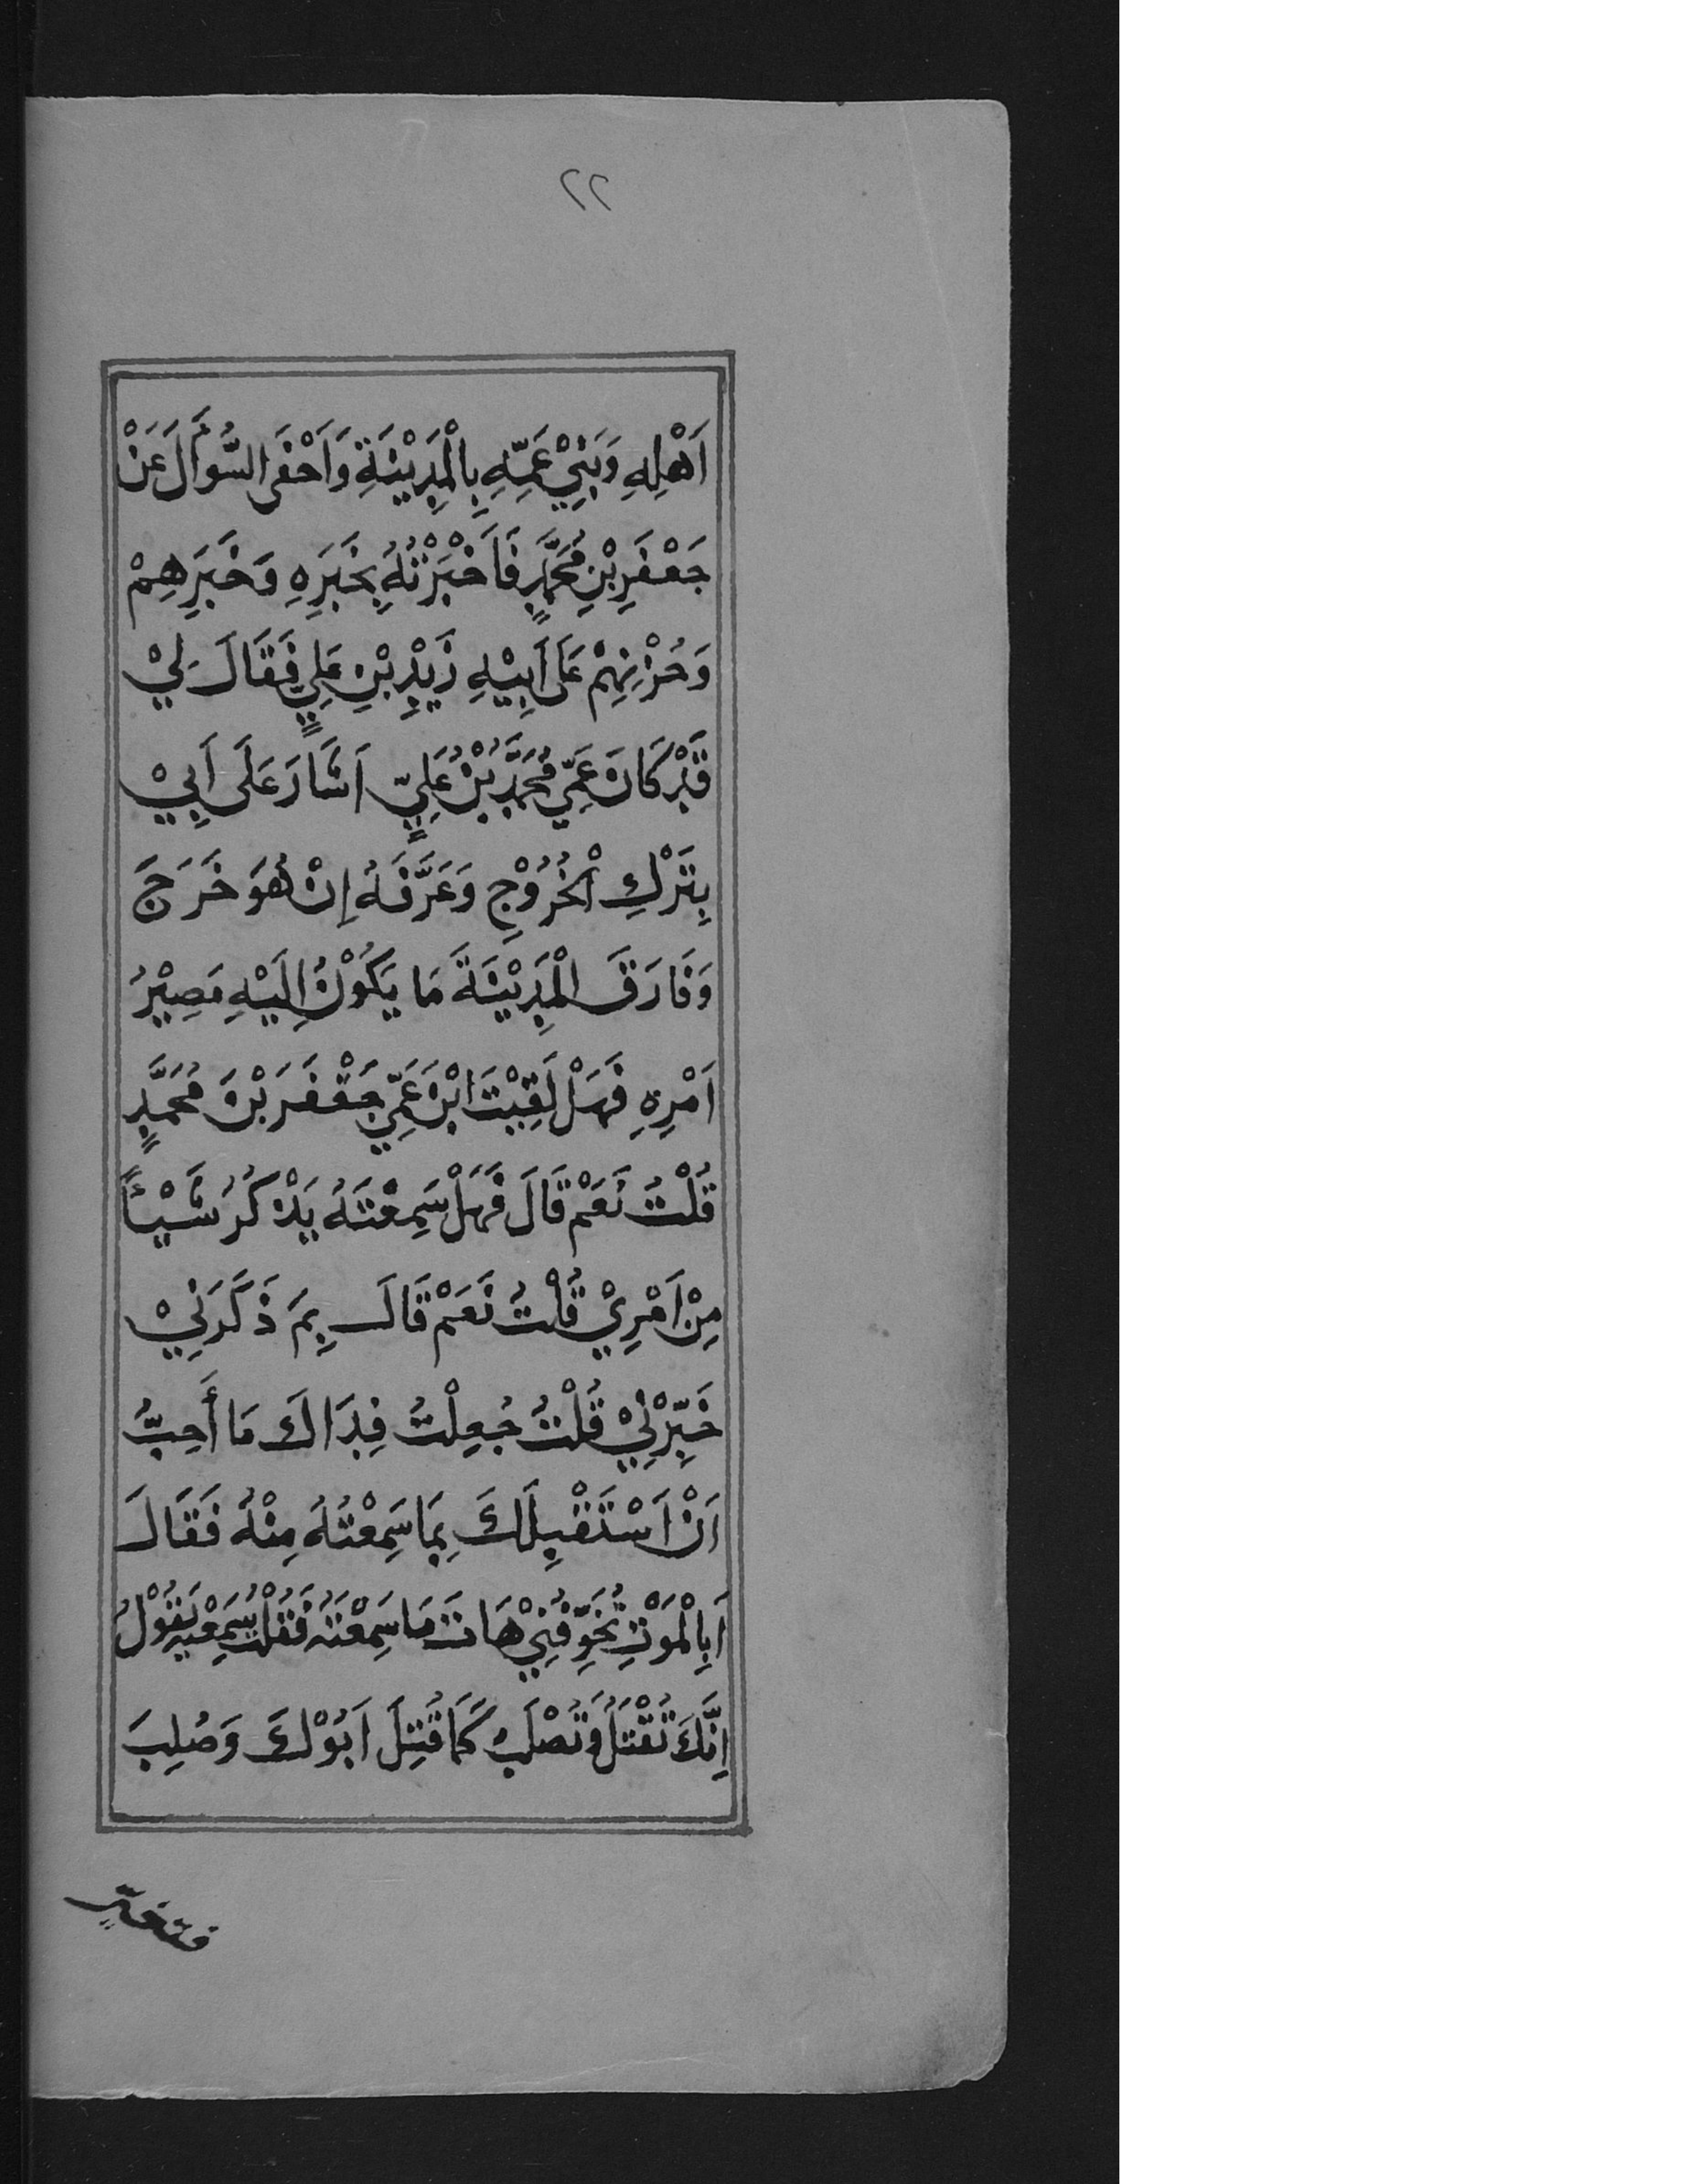 ٢٢
اَهْلِهِ وَبَنِيْ عَمِّهِ بِالْمَدِيْنَةِ وَاَحْفَى السُّؤَالَ عَنْ
جَعْفَرِ بْنِ مُحَمَّدٍ فَاَخْبَرْتُهُ بِخَبَرِهِ وَخَبَرِهِمْ
وَحُزْنِهِمْ عَلَى اَبِيْهِ زَيْدِ بْنِ عَلِيٍّ فَقَالَ لِيْ
قَدْ كَانَ عَمِّي مُحَمَّدُ بْنُ عَلِيٍّ اَشَارَ عَلَى اَبِيْ
بِتَرْكِ الْخُرُوْجِ وَعَرَّفَهُ اِنْ هُوَ خَرَجَ
وَفَارَقَ الْمَدِيْنَةَ مَا يَكُوْنُ اِلَيْهِ مَصِيْرُ
اَمْرِهِ فَهَلْ لَقِيْتَ ابْنَ عَمِّيْ جَعْفَرَ بْنَ مُحَمَّدٍ
قُلْتُ نَعَمْ قَالَ فَهَلْ سَمِعْتَهُ يَذْكُرُ شَيْئًا
مِنْ اَمْرِيْ قُلْتُ نَعَمْ قَالَ بِمَ ذَكَرَنِيْ
خَبِّرْنِيْ قُلْتُ جُعِلْتُ فِدَاكَ مَا أُحِبُّ
اَنْ اَسْتَقْبِلَكَ بِمَا سَمِعْتُهُ مِنْهُ فَقَالَ
اَبِالْمَوْتِ تُخَوِّفُنِيْ هَاتَ مَا سَمِعْتَهُ فَقُلْتُ سَمِعْتُهُ يَقُوْلُ
اِنَّكَ تُقْتَلُ وَتُصْلَبُ كَمَا قُتِلَ اَبُوْكَ وَصُلِبَ
فتغيّر